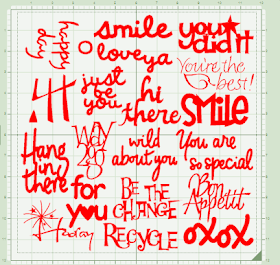 happy
day
smile
loveya
you
did it
You're the
best!
just
be
you
hi
there
smile
Hang
in
there
way
to
go
wild
about you
You are
so special
for
you
BE THE
CHANGE
RECYCLE
Bon
Appetit
oxox